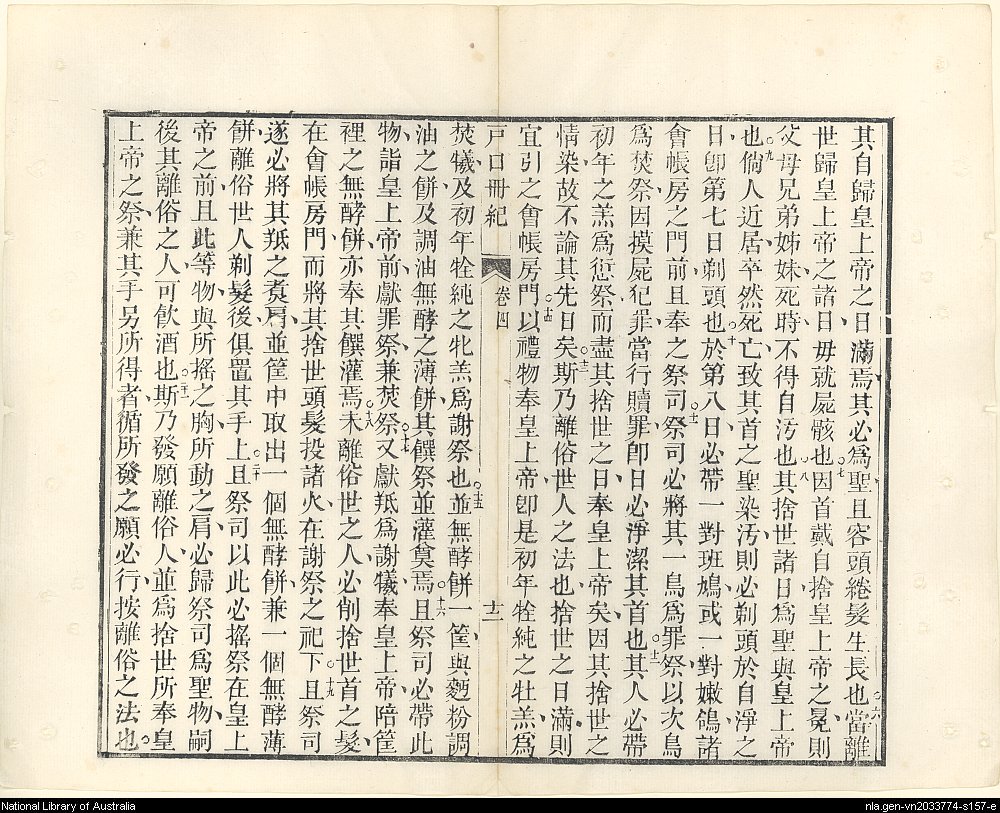 其自歸皇上帝之日滿焉其必爲聖且容頭綣髮生長也○六當離
世歸皇上帝之諸日毋就屍骸也○七因首戴自捨皇上帝之冕則
父母兄弟姊妹死時不得自汚也○八其捨世諸日爲聖與皇上帝
也○九倘人近居卒然死亡致其首之聖染汚則必剃頭於自淨之
日卽第七日剃頭也○十於第八日必帶一對班鳩或一對嫩鴿諸
會帳房之門前且奉之祭司○十一祭司必將其一鳥爲罪祭以次鳥
爲焚祭因摸屍犯罪當行贖罪卽日必淨潔其首也○十二其人必帶
初年之羔爲愆祭而盡其捨世之日奉皇上帝矣因其捨世之
情染故不論其先日矣○十三斯乃離俗世人之法也捨世之日滿則
宜引之會帳房門○十四以禮物奉皇上帝卽是初年牷純之牡羔爲
戶口冊紀 卷四 十二
焚犧及初年牷純之牝羔爲謝祭也○十五並無酵餅一筐與麪粉調
油之餅及調油無酵之薄餅其饌祭並灌奠焉○十六且祭司必帶此
物詣皇上帝前獻罪祭兼焚祭○十七又獻羝爲謝犧奉皇上帝陪筐
裡之無酵餅亦奉其饌灌焉○十八未離俗世之人必削捨世首之髮
在會帳房門而將其捨世頭髮投諸火在謝祭之祀下○十九且祭司
遂必將其羝之煑肩並筐中取出一個無酵餅兼一個無酵薄
餅離俗世人剃髮後俱置其手上○二十且祭司以此必搖祭在皇上
帝之前且此等物與所搖之胸所動之肩必歸祭司爲聖物嗣
後其離俗之人可飮酒也○二一斯乃發願離俗人並爲捨世所奉皇
上帝之祭兼其手另所得者循所發之願必行按離俗之法也
National Library of Australia
nla.gen-vn2033774-s157-e